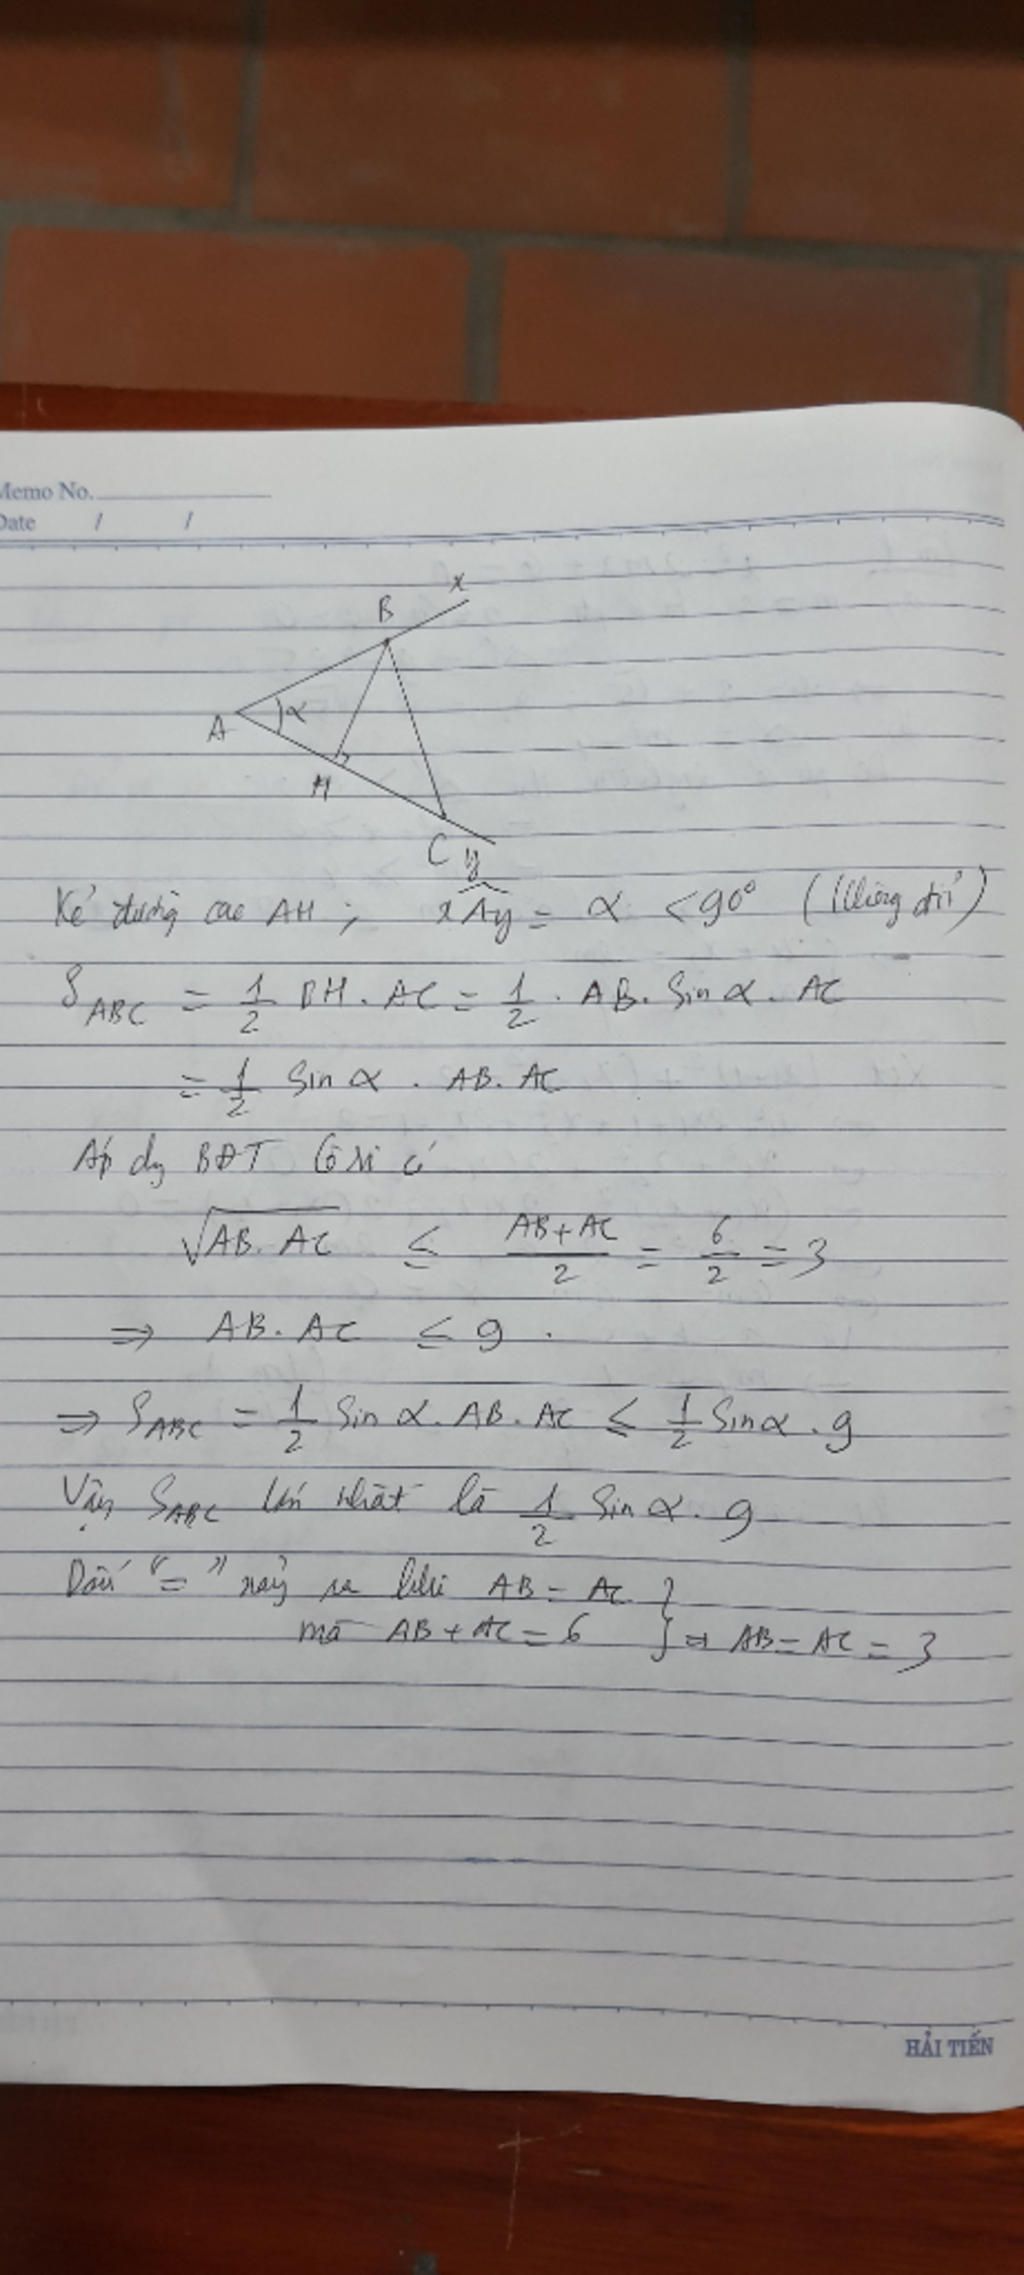 Memo No.
Date / /
x
B
A
α
H
C
y
Kẻ đường cao AH ; xAy = α < 90° (không đổi)
S ABC = 1/2 BH . AC = 1/2 . AB . Sin α . AC
= 1/2 Sin α . AB . AC
Áp dg BĐT Cô si có
√AB . AC ≤ AB + AC / 2 = 6/2 = 3
⇒ AB . AC ≤ 9 .
⇒ S ABC = 1/2 Sin α . AB . AC ≤ 1/2 Sin α . 9
Vậy S ABC lớn nhất là 1/2 Sin α . 9
Dấu "=" xảy ra khi AB = AC }
mà AB + AC = 6 } ⇒ AB = AC = 3
HẢI TIẾN